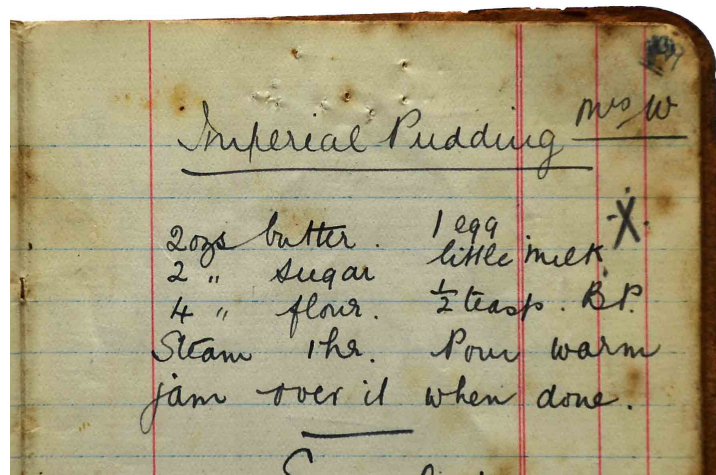 Imperial Pudding Mrs W
2ozs butter. 1 egg X
2 " sugar little milk
4 " flour. ½ teasp. B.P.
Steam 1 hr. Pour warm
jam over it when done.